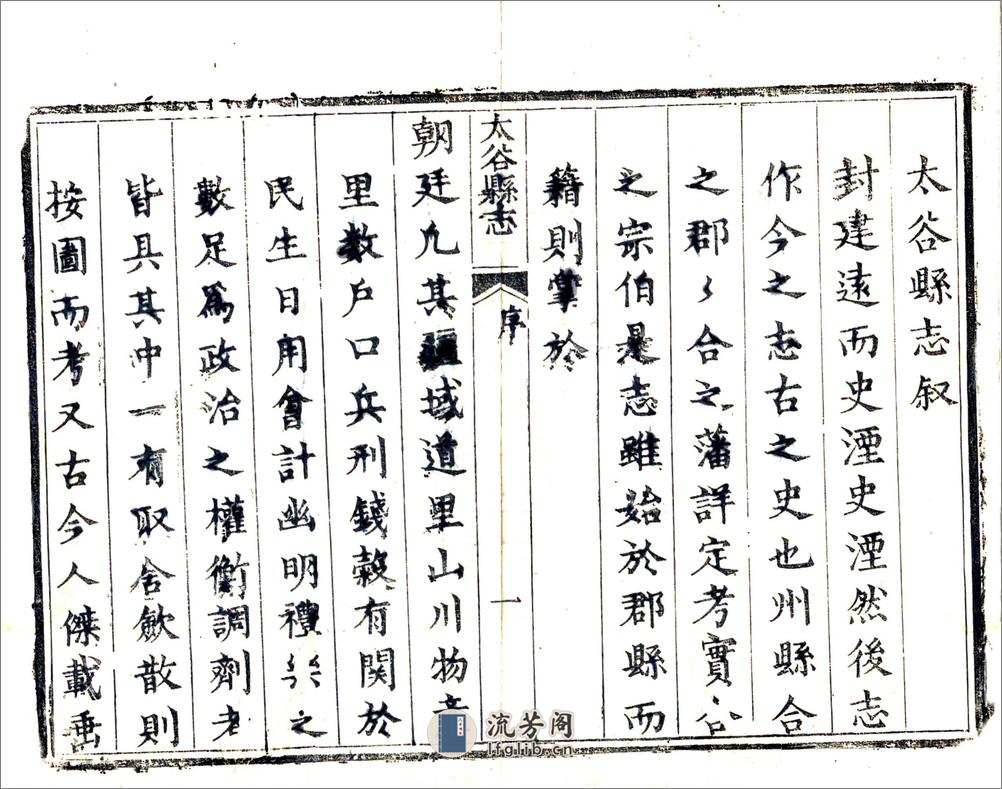 太谷縣志叙
封建遠而史湮史湮然後志
作今之志古之史也州縣合
之郡〻合之藩詳定考實
之宗伯是志雖始於郡縣而
籍則掌於
太谷縣志
序
一
朝廷凢其疆域道里山川物
里数户口兵刑錢穀有関於
民生日用會計幽明禮之
數足爲政治之權衡調劑者
皆具其中一有取舍斂散則
按圖而考又古今人傑載
流芳阁
lfglib.cn